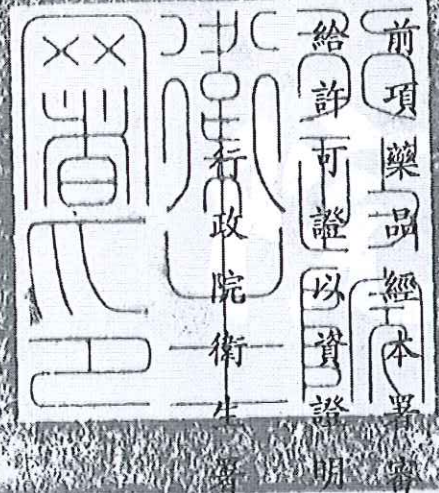 前項藥品經本署審
給許可證以資證明
行政院衛生署